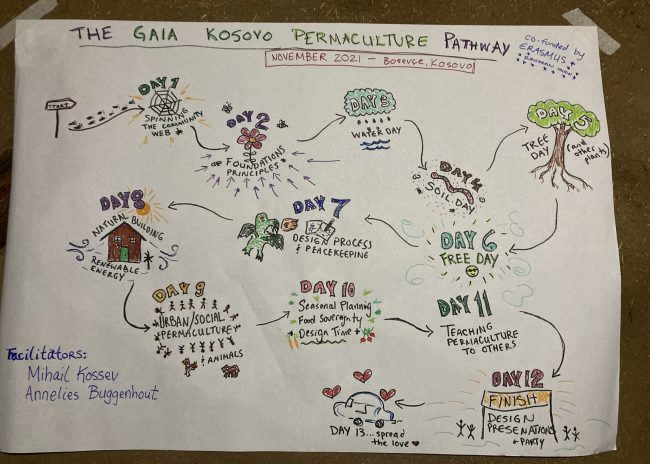 THE GAIA KOSOVO PERMACULTURE PATHWAY
NOVEMBER 2021 – BOSEVCE, KOSOVO
co-funded by
ERASMUS+
EUROPEAN UNION
START
DAY 1
SPINNING
THE COMMUNITY
WEB
DAY 2
FOUNDATIONS
PRINCIPLES
DAY 3
WATER DAY
DAY 4
SOIL DAY
DAY 5
TREE
DAY (and
other
plants)
DAY 6
FREE DAY
DAY 7
DESIGN PROCESS
& PEACEKEEPING
DAY 8
NATURAL BUILDING
RENEWABLE
ENERGY
DAY 9
URBAN/SOCIAL
PERMACULTURE
& ANIMALS
DAY 10
Seasonal Planning
Food Sovereignty
Design Time
DAY 11
TEACHING
PERMACULTURE
TO OTHERS
DAY 12
FINISH
DESIGN
PRESENATIONS
+ PARTY
DAY 13... spread
the love
Facilitators:
Mihail Kossev
Annelies Buggenhout